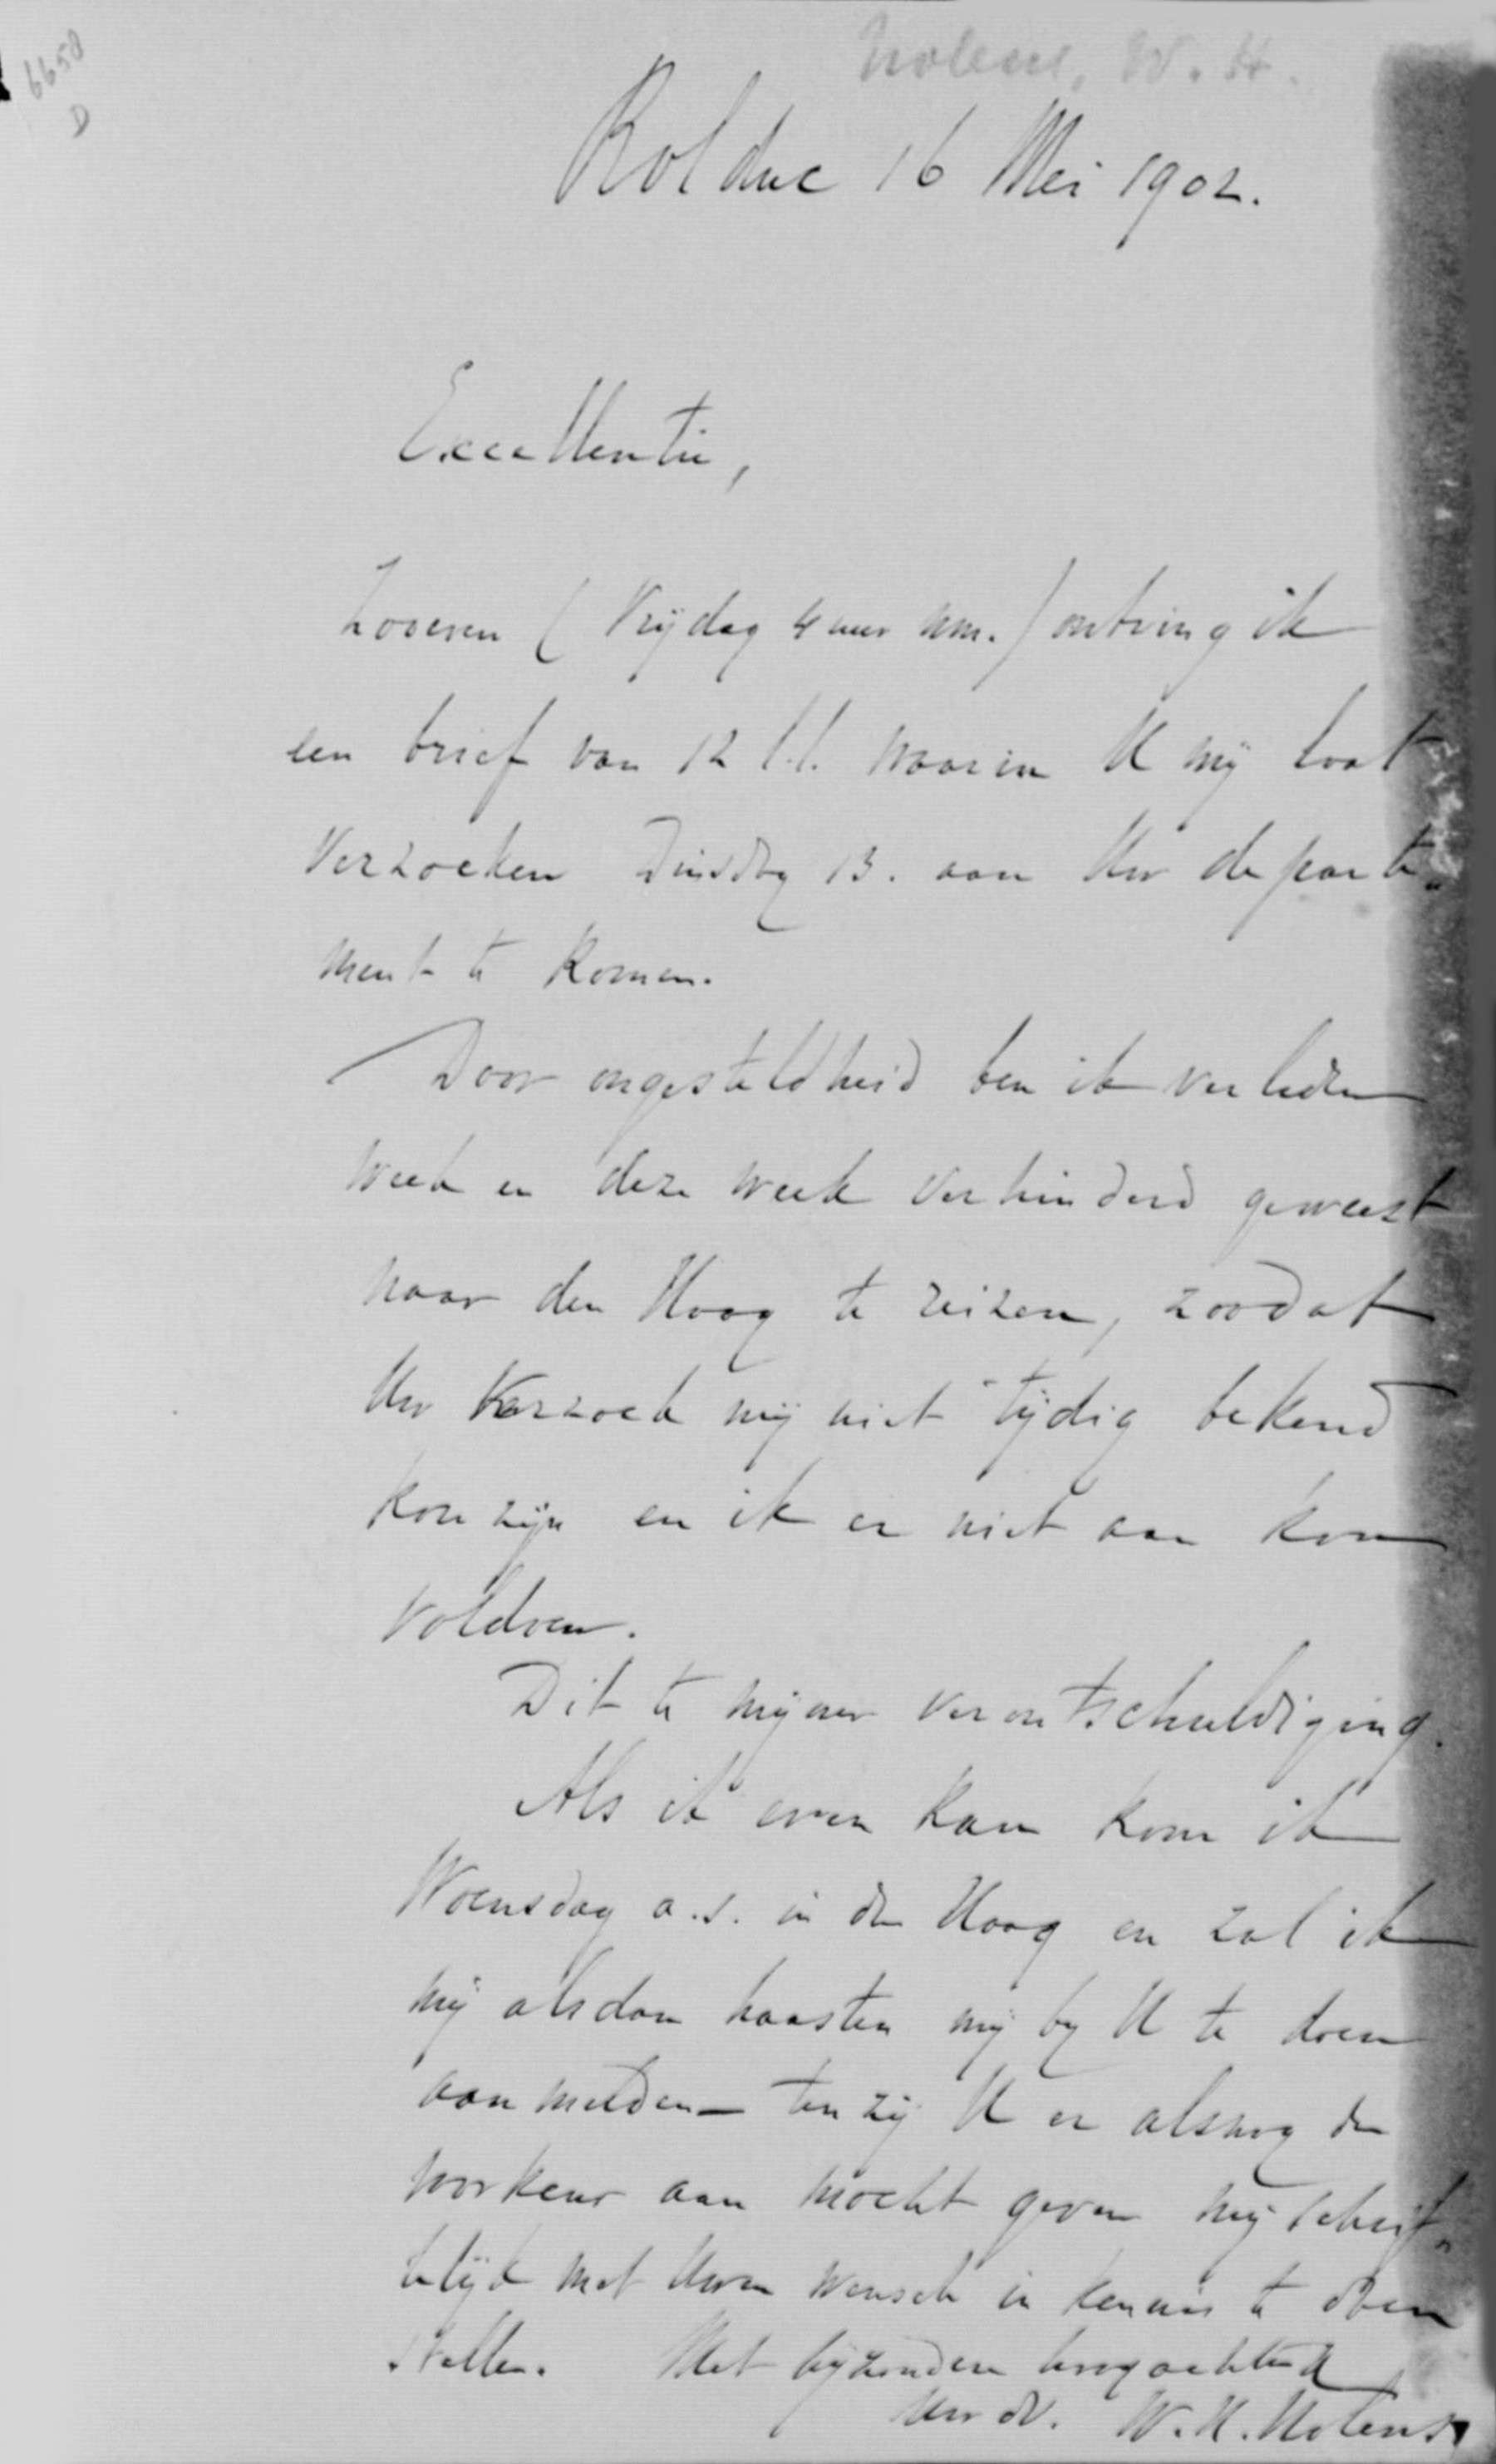 6658
D
Nolens, W. H.
Rolduc 16 Mei 1902.
Excellentie,
Zoo even (Vrijdag 4 uur nm.) ontving ik
een brief van 12 l.l. waarin U mij laat
verzoeken Dinsdag 13. aan Uw departe„
ment te komen.
Door ongesteldheid ben ik verleden
week en deze week verhinderd geweest
naar den Haag te reizen, zoodat
Uw verzoek mij niet tijdig bekend
kon zijn en ik er niet aan kon
voldoen.
Dit te mijner verontschuldiging.
Als ik even kan kom ik
Woensdag a.s. in den Haag en zal ik
mij alsdan haasten mij by U te doen
aanmelden — tenzij U er alsnog de
voorkeur aan mocht geven mij schrif„
telijk met Uwen wensch in kennis te doen
stellen. Met bijzondere hoogachting
Uw dv. W.H. Nolens